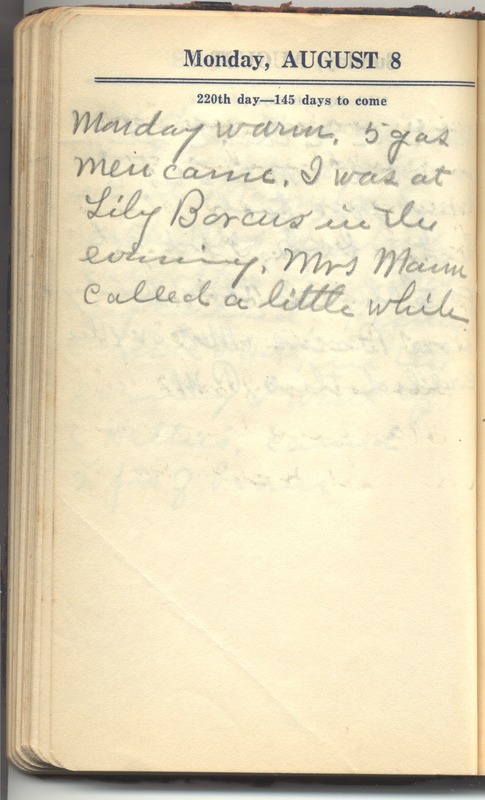 Monday, AUGUST 8
220th day—145 days to come
Monday warm. 5 gas
men came. I was at
Lily Borcus in the
evening. Mrs Mann
called a little while